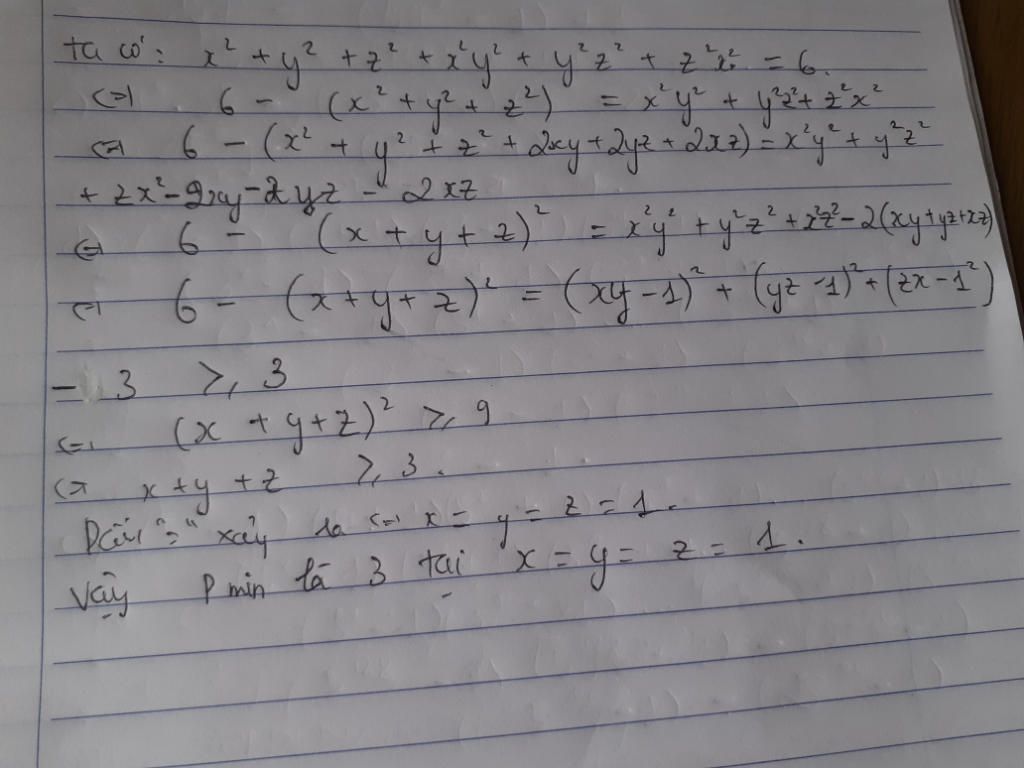 ta có: x² + y² + z² + x²y² + y²z² + z²x² = 6.
<=> 6 - (x² + y² + z²) = x²y² + y²z² + z²x²
<=> 6 - (x² + y² + z² + 2xy + 2yz + 2xz) = x²y² + y²z²
+ zx² - 2xy - 2yz - 2xz
<=> 6 - (x + y + z)² = x²y² + y²z² + x²z² - 2(xy + yz + xz)
<=> 6 - (x + y + z)² = (xy - 1)² + (yz - 1)² + (zx - 1²)
- 3 ≥ 3
<=> (x + y + z)² ≥ 9
<=> x + y + z ≥ 3.
Dấu "=" xảy ra <=> x = y = z = 1.
Vậy P min là 3 tại x = y = z = 1.